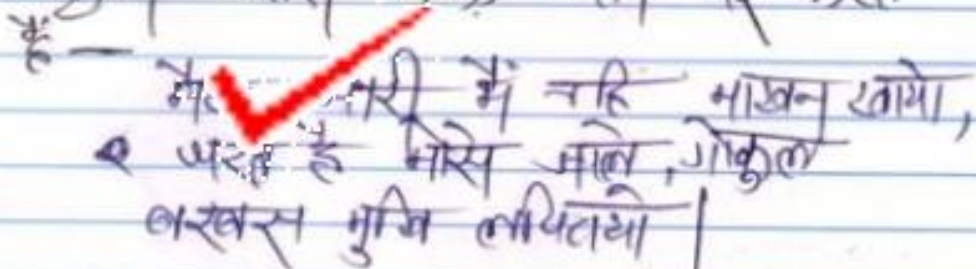 हैं —
री मैं नहि माखन खायो,
है मोसे जाले, गोकुल
बरबस मुखि लपिटायो |